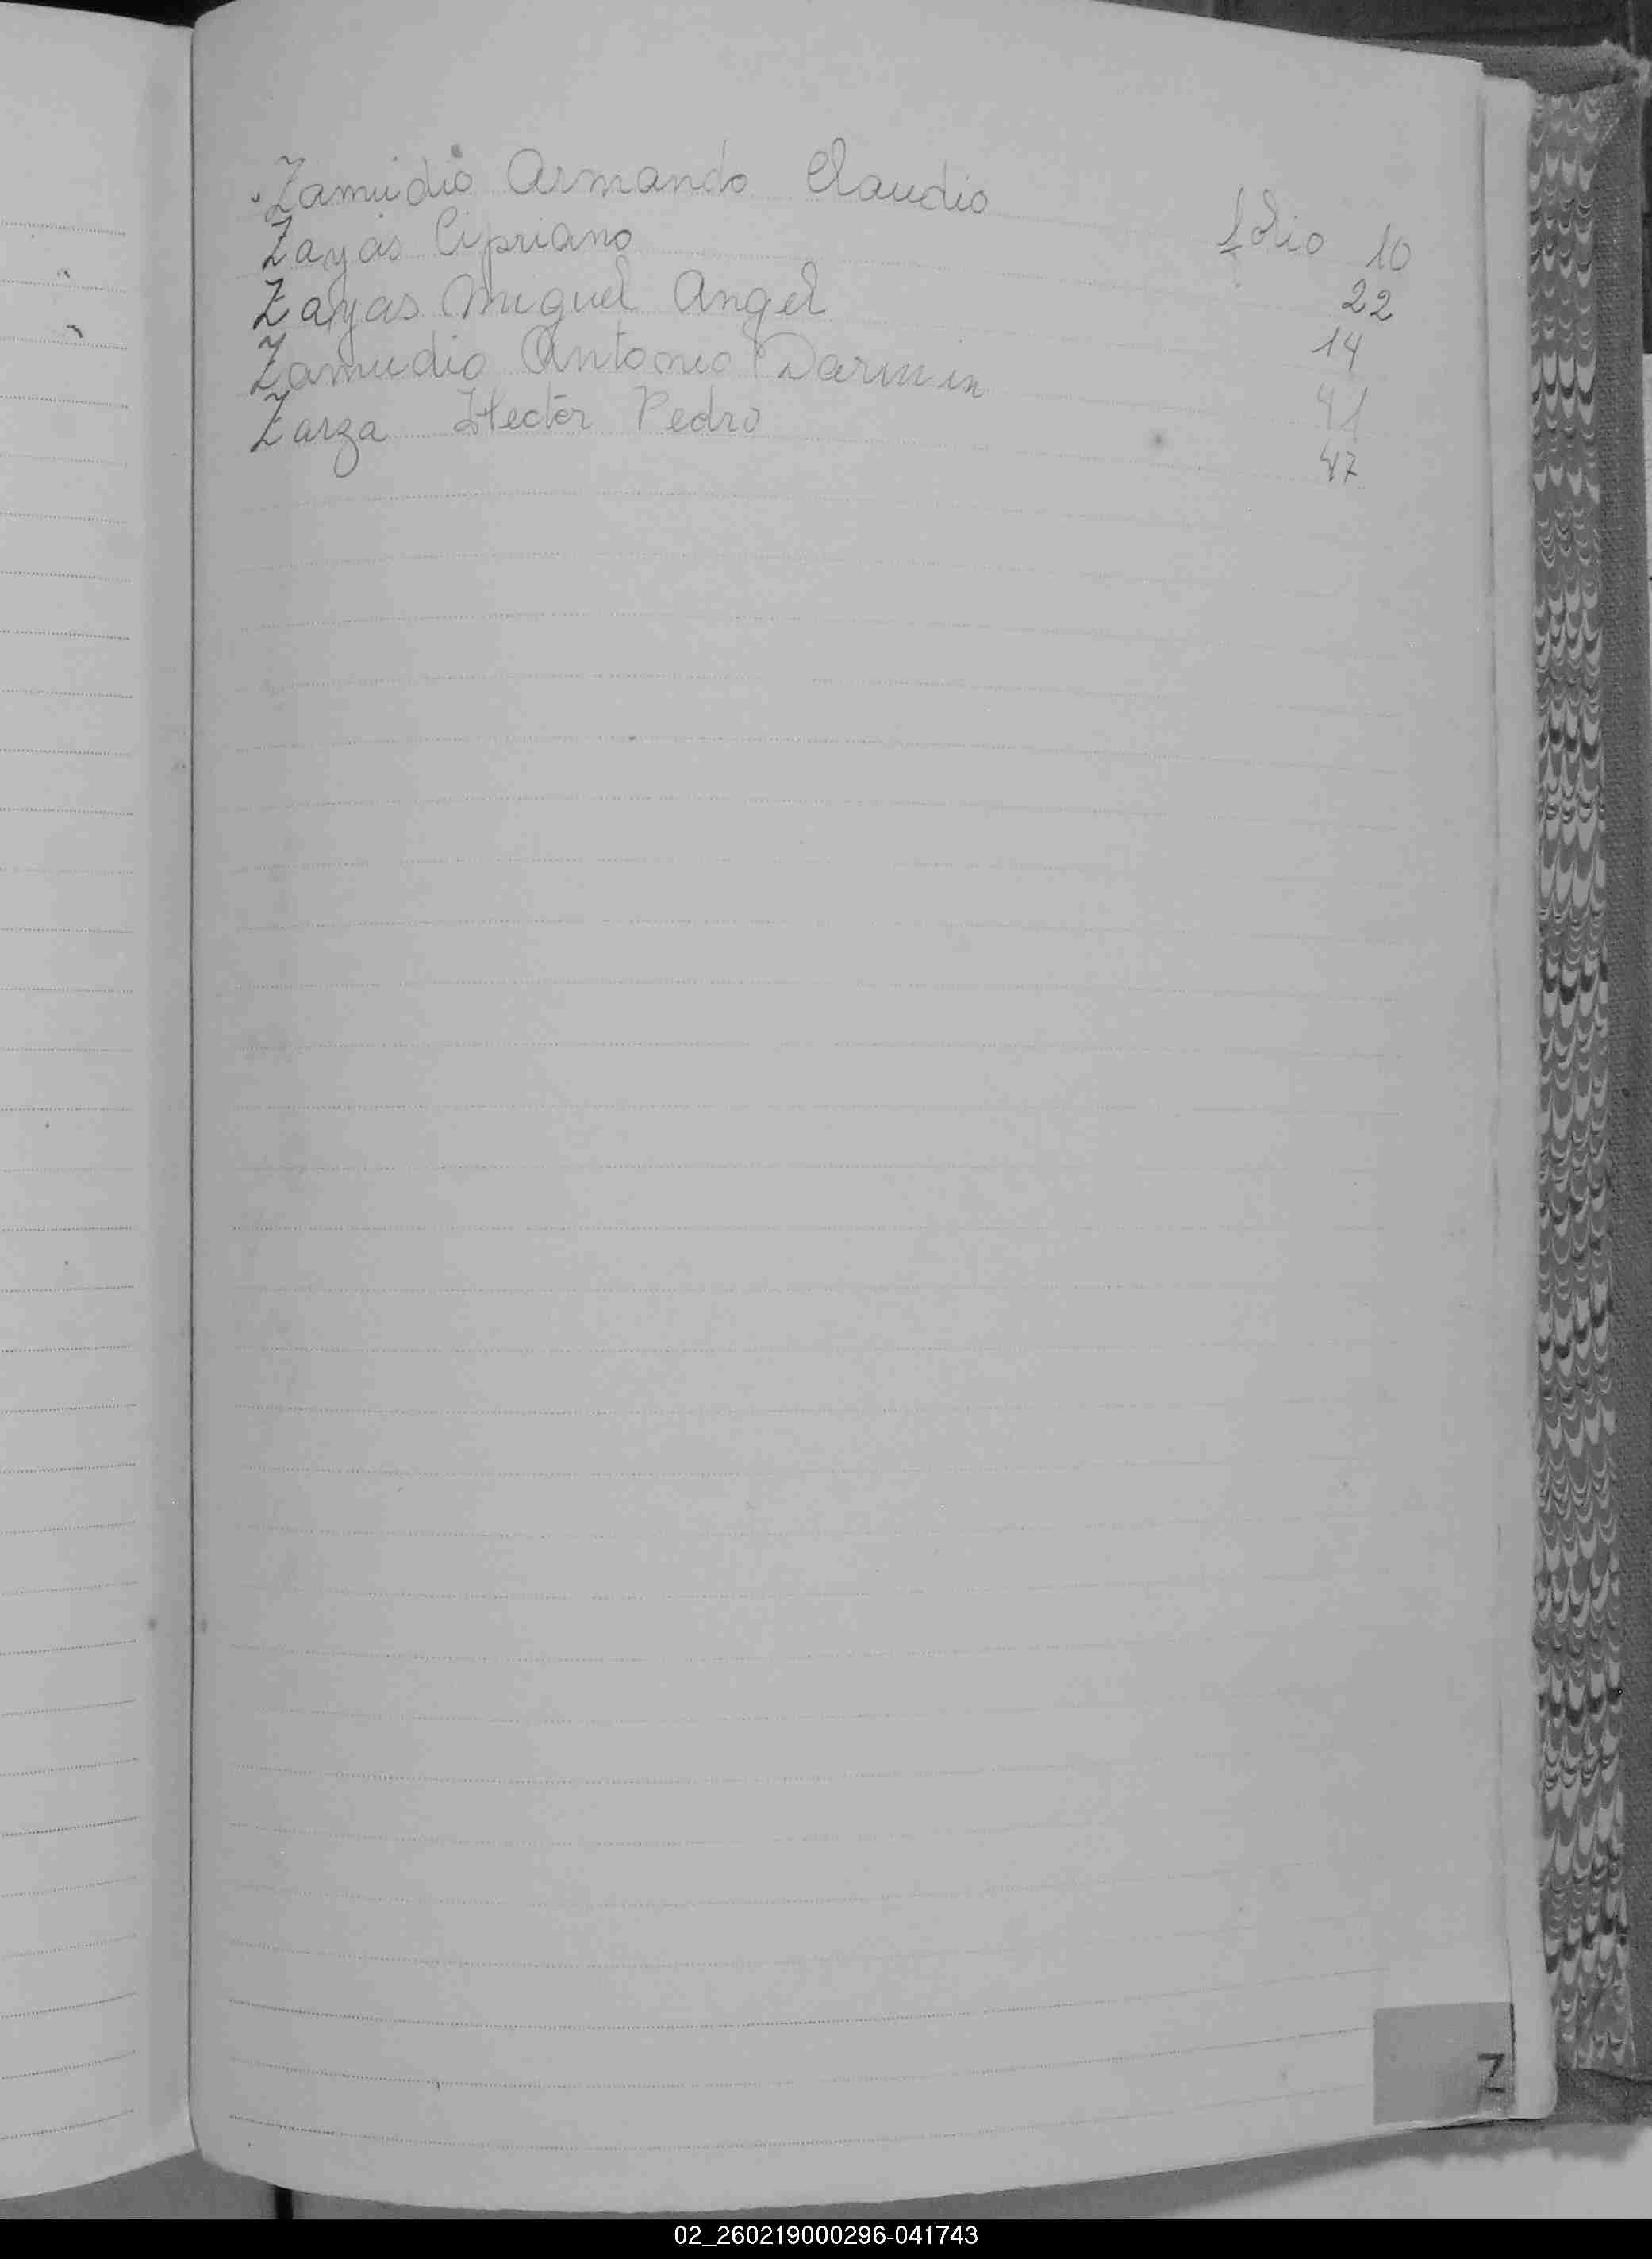 Zamudio Armando Claudio folio 10
Zayas Cipriano 22
Zayas Miguel Angel 14
Zamudio Antonio Darwin 41
Zarza Hector Pedro 47
Z
02_260219000296-041743